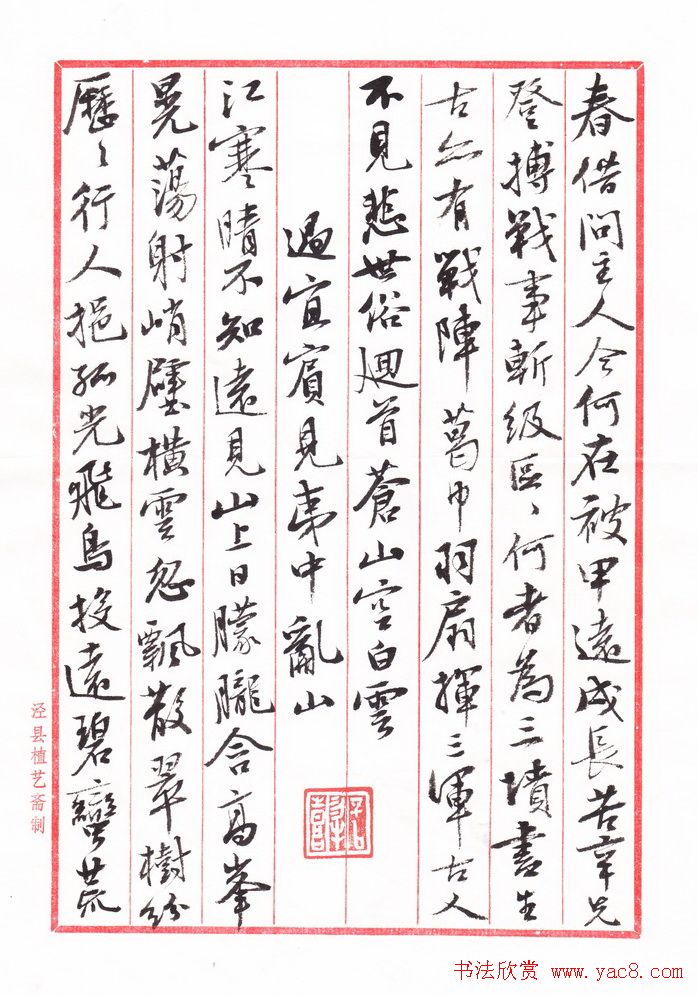 春借問主人今何在被甲遠戍長苦辛先
登搏戰事斬級區、何者為三墳書生
古亦有戰陣葛巾羽扇揮三軍古人
不見悲世俗廻首蒼山空白雲
過宜賓見夷中亂山
江寒晴不知遠見山上日朦朧含高峯
晃蕩射峭壁橫雲忽飄散翠樹紛
歷〻行人挹孤光飛鳥投遠碧蠻荒
泾县植艺斋制
书法欣赏 www.yac8.com